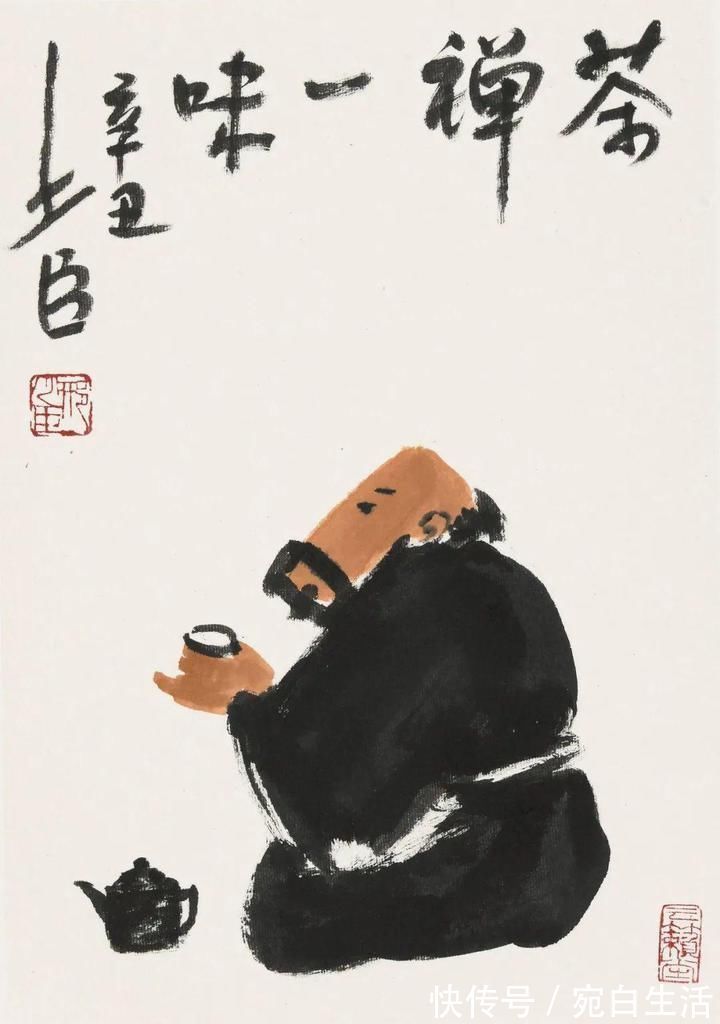 茶禅一味
辛丑
少臣
快传号 / 宛白生活